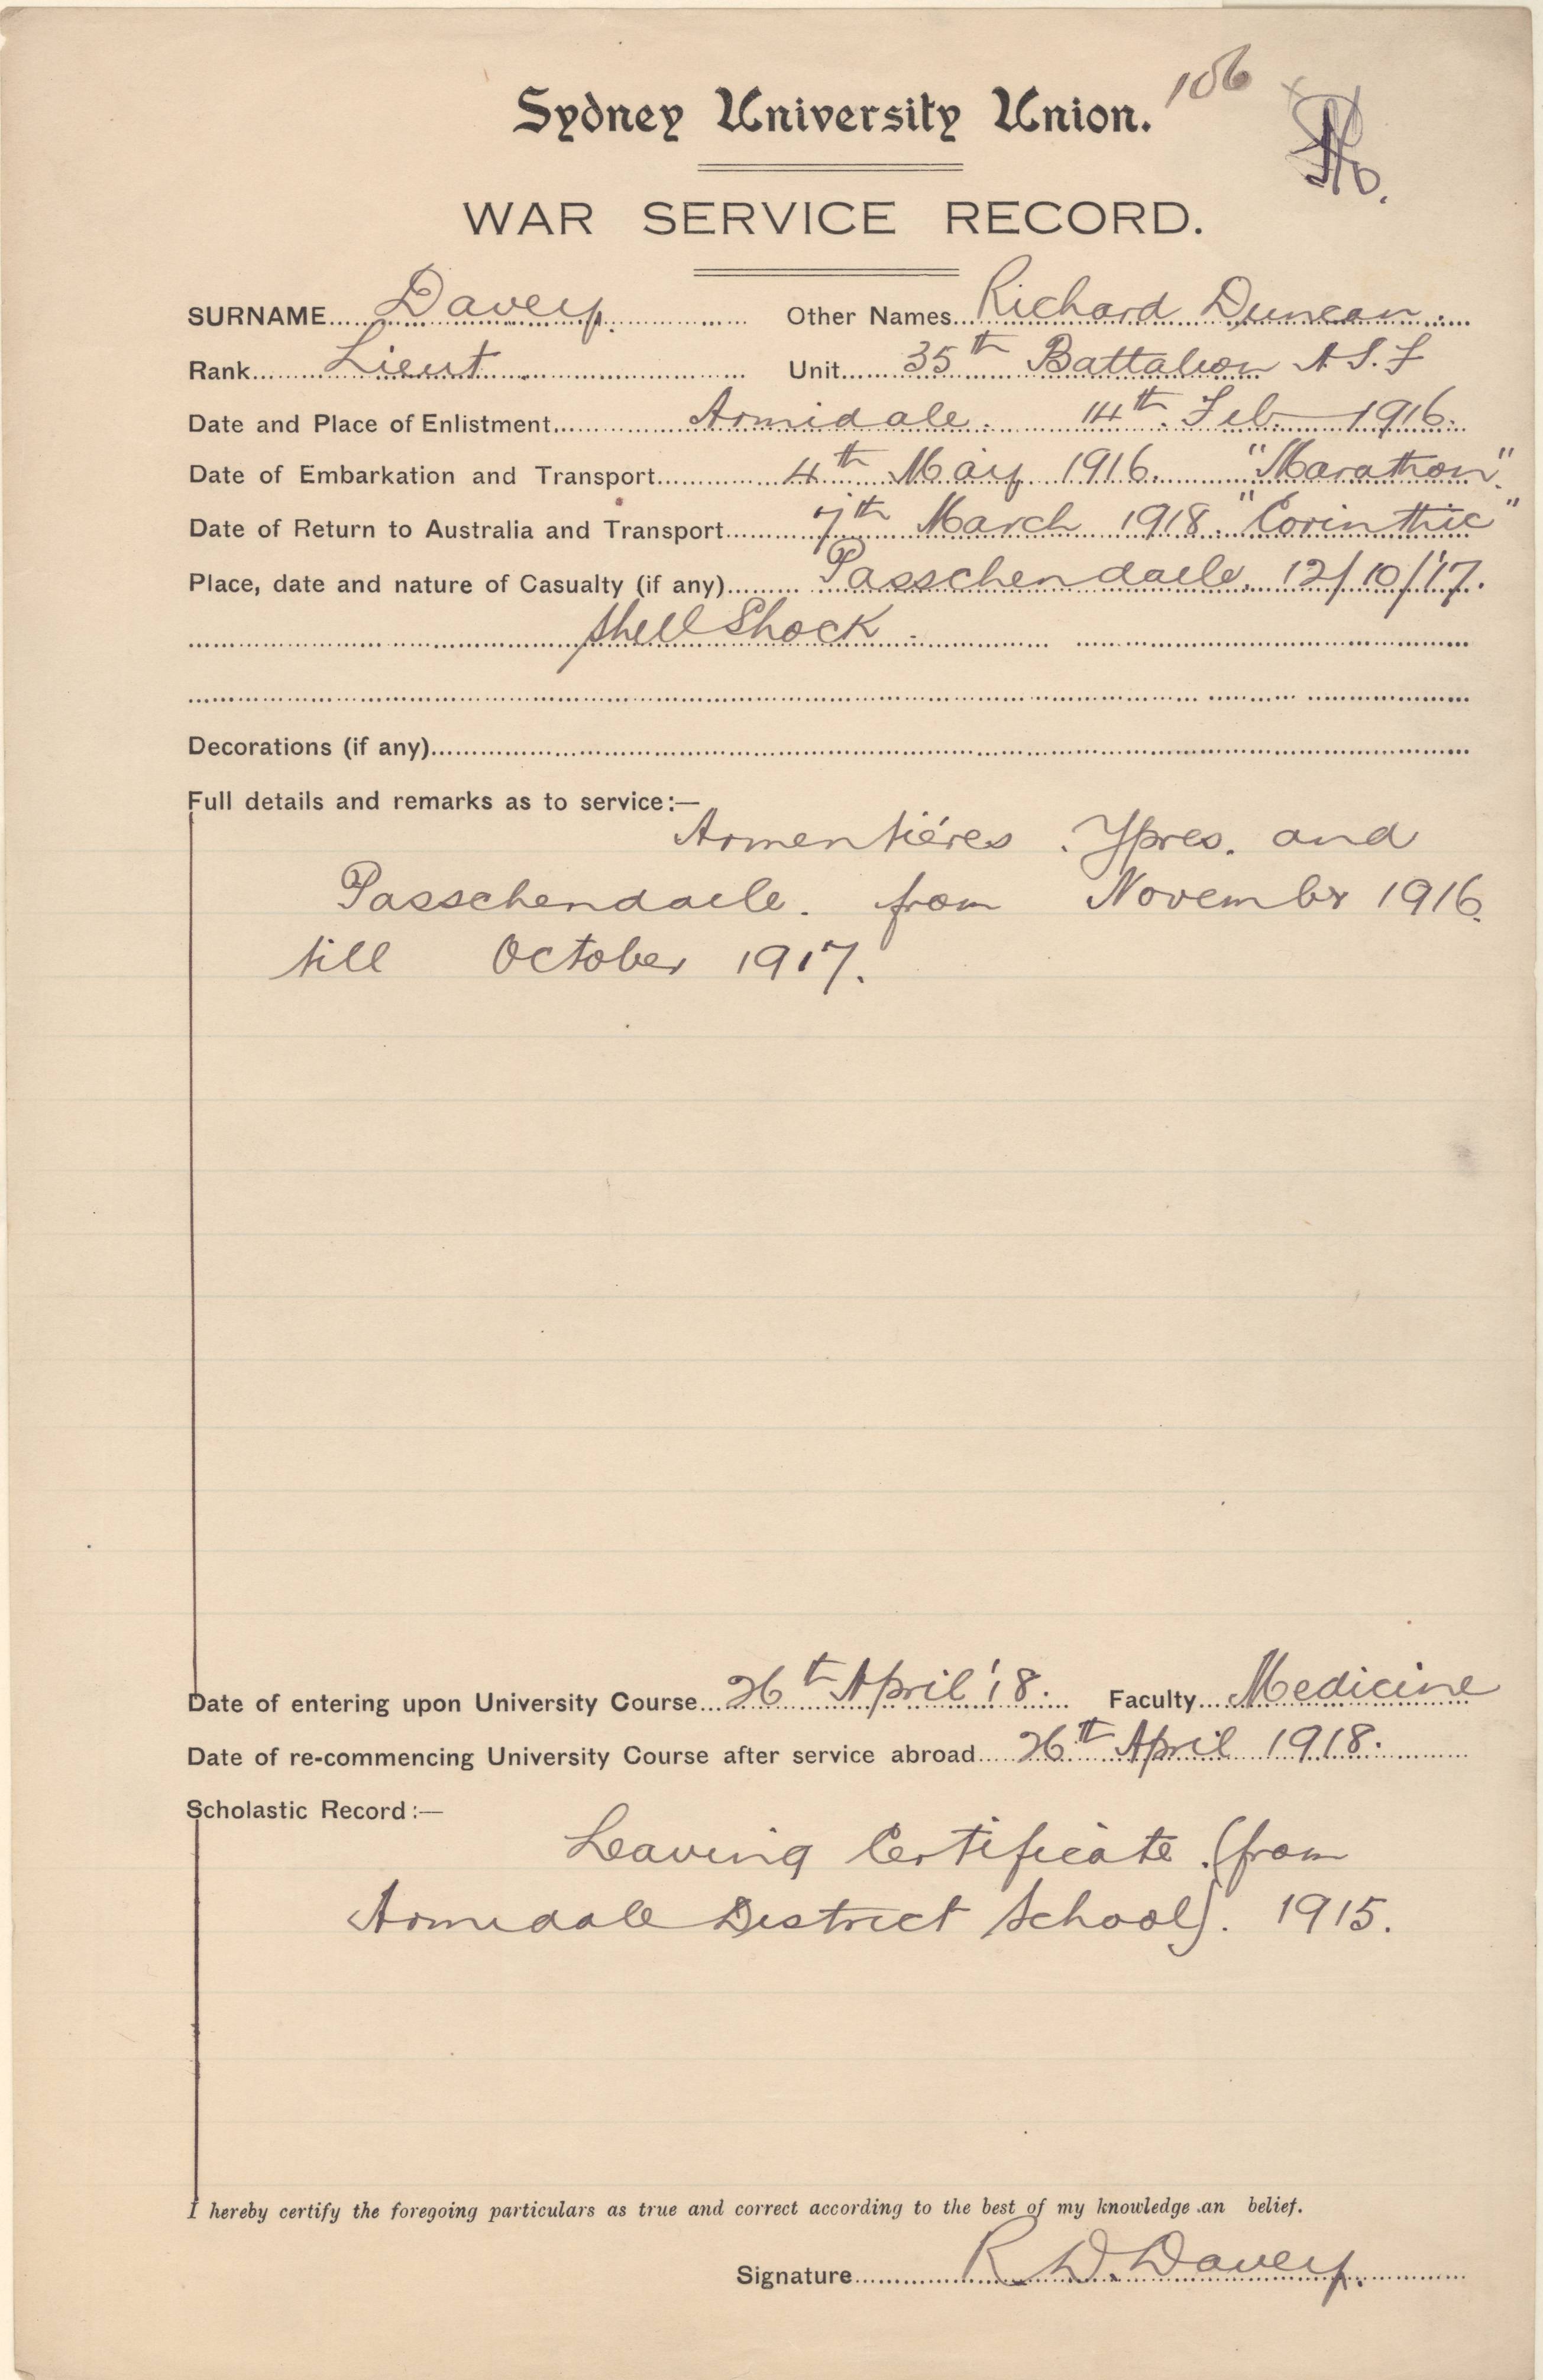 106
Sydney University Union.
WAR SERVICE RECORD.
SURNAME Davey. Other Names Richard Duncan.
Rank Lieut. Unit 35th Battalion A.I.F
Date and Place of Enlistment Armidale. 14th Feb. 1916.
Date of Embarkation and Transport 4th May 1916. "Marathon".
Date of Return to Australia and Transport 7th March 1918. "Corinthic"
Place, date and nature of Casualty (if any) Passchendaele. 12/10/'17.
Shell Shock.
Decorations (if any)
Full details and remarks as to service:—
Armentiéres. Ypres. and
Passchendaele. from November 1916.
till October 1917.
Date of entering upon University Course 26th April '18. Faculty Medicine
Date of re-commencing University Course after service abroad 26th April 1918.
Scholastic Record:—
Leaving Certificate. (from
Armidale District School). 1915.
I hereby certify the foregoing particulars as true and correct according to the best of my knowledge an belief.
Signature R D. Davey.